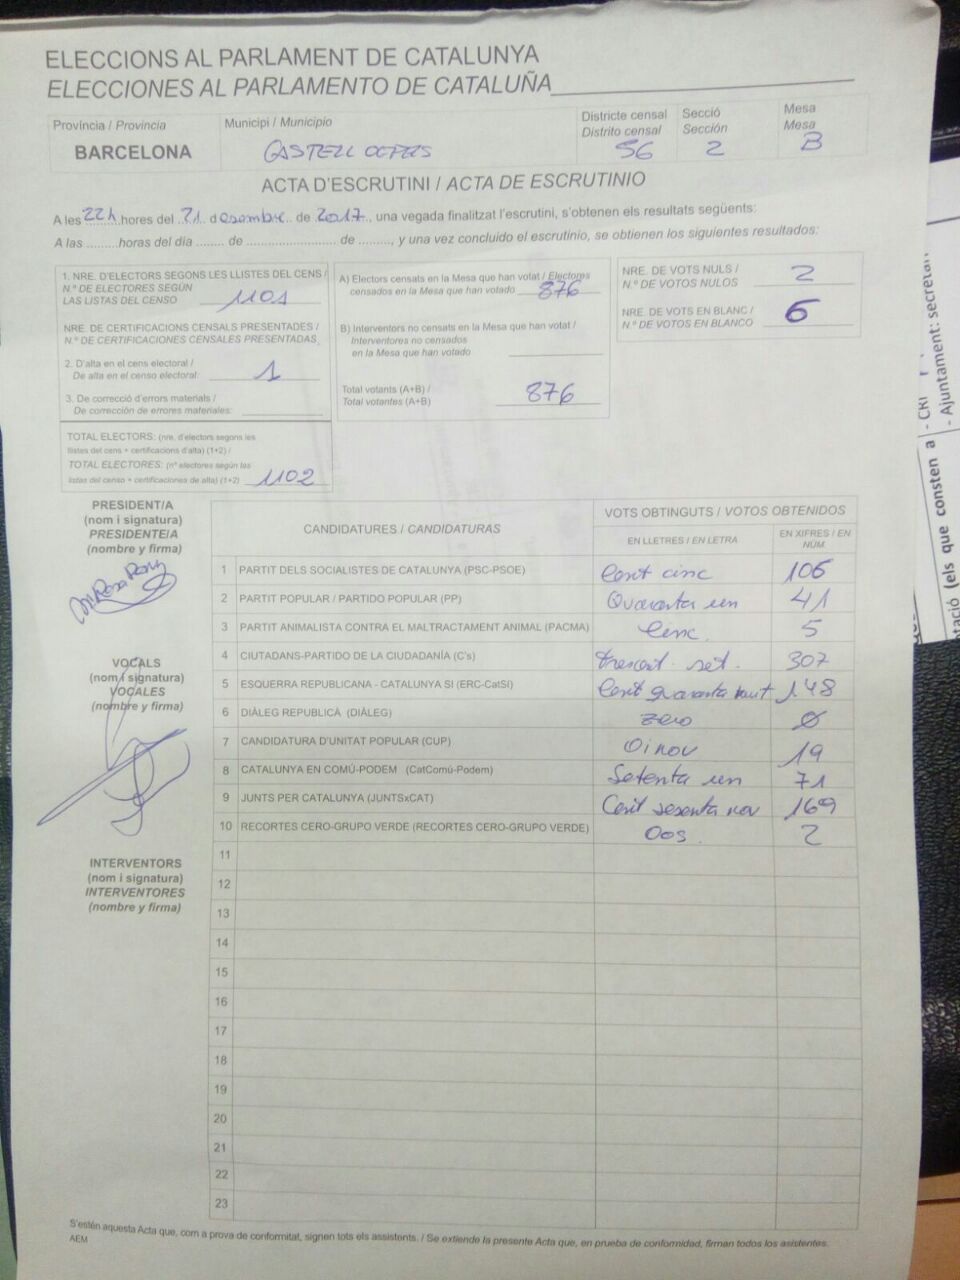 ELECCIONS AL PARLAMENT DE CATALUNYA
ELECCIONES AL PARLAMENTO DE CATALUÑA
Província / Provincia
BARCELONA
Municipi / Municipio
Districte censal
Distrito censal
56
Secció
Sección
2
Mesa
Mesa
B
ACTA D'ESCRUTINI / ACTA DE ESCRUTINIO
A les 22h hores del 21 desembre de 2017, una vegada finalitzat l'escrutini, s'obtenen els resultats següents:
A las ........horas del día ........ de ........................ de ........, y una vez concluido el escrutinio, se obtienen los siguientes resultados:
1. NRE. D'ELECTORS SEGONS LES LLISTES DEL CENS /
N.º DE ELECTORES SEGÚN
LAS LISTAS DEL CENSO 1101
NRE. DE CERTIFICACIONS CENSALS PRESENTADES /
N.º DE CERTIFICACIONES CENSALES PRESENTADAS
2. D'alta en el cens electoral /
De alta en el censo electoral: 1
3. De correcció d'errors materials /
De corrección de errores materiales:
TOTAL ELECTORS: (nre. d'electors segons les
llistes del cens + certificacions d'alta) (1+2) /
TOTAL ELECTORES: (nº electores según las
listas del censo + certificaciones de alta) (1+2) 1102
A) Electors censats en la Mesa que han votat / Electores
censados en la Mesa que han votado 876
B) Interventors no censats en la Mesa que han votat /
Interventores no censados
en la Mesa que han votado
Total votants (A+B) /
Total votantes (A+B) 876
NRE. DE VOTS NULS /
N.º DE VOTOS NULOS 2
NRE. DE VOTS EN BLANC /
N.º DE VOTOS EN BLANCO 6
PRESIDENT/A
(nom i signatura)
PRESIDENTE/A
(nombre y firma)
VOCALS
(nom i signatura)
VOCALES
(nombre y firma)
INTERVENTORS
(nom i signatura)
INTERVENTORES
(nombre y firma)
CANDIDATURES / CANDIDATURAS
VOTS OBTINGUTS / VOTOS OBTENIDOS
EN LLETRES / EN LETRA
EN XIFRES / EN NÚM.
1 PARTIT DELS SOCIALISTES DE CATALUNYA (PSC-PSOE) Cent cinc
2 PARTIT POPULAR / PARTIDO POPULAR (PP) Quaranta un 41
3 PARTIT ANIMALISTA CONTRA EL MALTRACTAMENT ANIMAL (PACMA) Cinc. 5
4 CIUTADANS-PARTIDO DE LA CIUDADANÍA (C's) set. 307
5 ESQUERRA REPUBLICANA - CATALUNYA SI (ERC-CatSI) Cent quaranta vuit 148
6 DIÀLEG REPUBLICÀ (DIÀLEG) zero 0
7 CANDIDATURA D'UNITAT POPULAR (CUP) Dinou 19
8 CATALUNYA EN COMÚ-PODEM (CatComú-Podem) Setenta un 71
9 JUNTS PER CATALUNYA (JUNTSxCAT) Cent sesenta nou 169
10 RECORTES CERO-GRUPO VERDE (RECORTES CERO-GRUPO VERDE) Dos. 2
11
12
13
14
15
16
17
18
19
20
21
22
23
S'estén aquesta Acta que, com a prova de conformitat, signen tots els assistents. / Se extiende la presente Acta que, en prueba de conformidad, firman todos los asistentes.
AEM
- Ajuntament:
tació (els que consten a